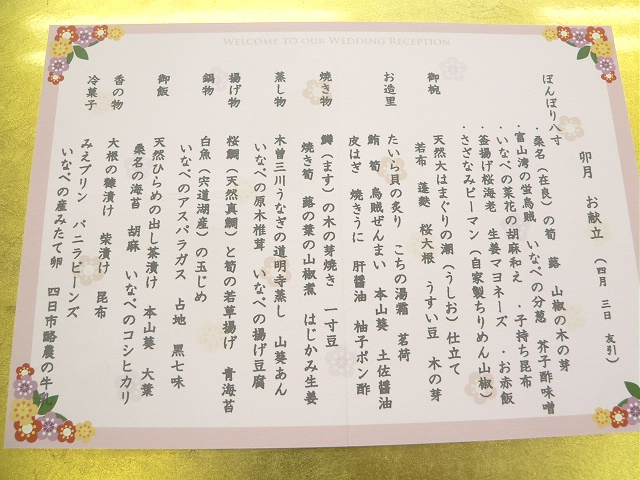 WELCOME TO OUR WEDDING RECEPTION
卯月 お献立 （四月 三日 友引）
ぼんぼり八寸
・桑名（在良）の筍 蕗 山椒の木の芽
・富山湾の蛍烏賊 いなべの分葱 芥子酢味噌
・いなべの菜花の胡麻和え ・子持ち昆布
・釜揚げ桜海老 生姜マヨネーズ ・お赤飯
・さざなみピーマン（自家製ちりめん山椒）
御椀
天然大はまぐりの潮（うしお）仕立て
若布 蓬麩 桜大根 うすい豆 木の芽
お造里
たいら貝の炙り こちの湯霜 茗荷
鮪 筍 烏賊ぜんまい 本山葵 土佐醤油
皮はぎ 焼きうに 肝醤油 柚子ポン酢
焼き物
鱒（ます）の木の芽焼き 一寸豆
焼き筍 蕗の葉の山椒煮 はじかみ生姜
蒸し物
木曽三川うなぎの道明寺蒸し 山葵あん
いなべの原木椎茸 いなべの揚げ豆腐
揚げ物
桜鯛（天然真鯛）と筍の若草揚げ 青海苔
鍋物
白魚（宍道湖産）の玉じめ
いなべのアスパラガス 占地 黒七味
御飯
天然ひらめの出し茶漬け 本山葵 大葉
桑名の海苔 胡麻 いなべのコシヒカリ
香の物
大根の糠漬け 柴漬け 昆布
冷菓子
みえプリン バニラビーンズ
いなべの産みたて卵 四日市酪農の牛乳